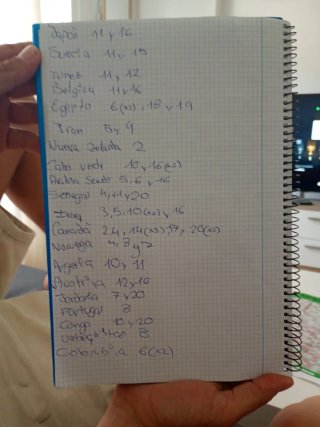 Japon 11 y 16
Suecia 11 y 15
Tunez 11 y 12
Belgica 11 y 16
Egipto 6(x2), 18 y 19
Iran 5 y 9
Nueva Zelanda 2
Cabo verde 10 y 16(x2)
Arabia Saudi 5, 6 y 16
Senegal 4, 11 y 20
Iraq 3, 5, 10(x2) y 16
Canadá 2, 4, 14(x3), 17, 20(x2)
Noruega 4, 3 y 7
Argelia 10 y 11
Austria 12 y 16
Jordania 7 y 20
Portugal 8
Congo 10 y 20
Uzbequistan 8
Colombia 6(x2)